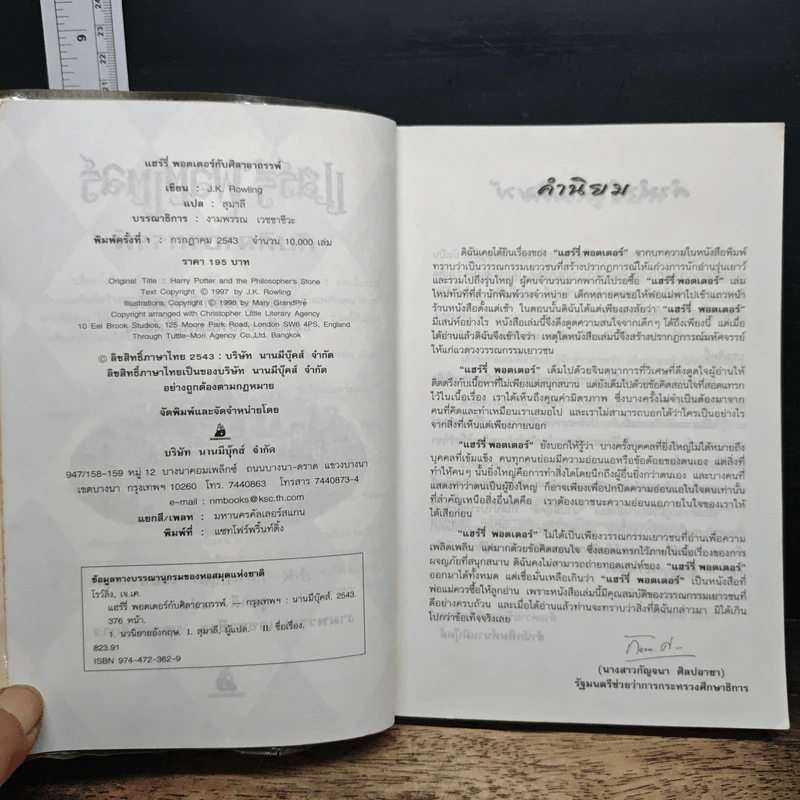 แฮร์รี่ พอตเตอร์กับศิลาอาถรรพ์
เขียน : J.K. Rowling
แปล : สุมาลี
บรรณาธิการ : งามพรรณ เวชชาชีวะ
พิมพ์ครั้งที่ 1 : กรกฎาคม 2543 จำนวน 10,000 เล่ม
ราคา 195 บาท
Original Title : Harry Potter and the Philosopher's Stone
Text Copyright © 1997 by J.K. Rowling
Illustrations Copyright © 1998 by Mary GrandPré
Copyright arranged with Christopher Little Literary Agency
10 Eel Brook Studios, 125 Moore Park Road, London SW6 4PS, England
Through Tuttle-Mori Agency Co.,Ltd. Bangkok
© ลิขสิทธิ์ภาษาไทย 2543 : บริษัท นานมีบุ๊คส์ จำกัด
ลิขสิทธิ์ภาษาไทยเป็นของบริษัท นานมีบุ๊คส์ จำกัด
อย่างถูกต้องตามกฎหมาย
จัดพิมพ์และจัดจำหน่ายโดย
บริษัท นานมีบุ๊คส์ จำกัด
947/158-159 หมู่ 12 บางนาคอมเพล็กซ์ ถนนบางนา-ตราด แขวงบางนา
เขตบางนา กรุงเทพฯ 10260 โทร. 7440863 โทรสาร 7440873-4
e-mail : nmbooks@ksc.th.com
แยกสี/เพลท : มหานครคัลเลอร์สแกน
พิมพ์ที่ : แซทโฟร์พริ้นท์ติ้ง
ข้อมูลทางบรรณานุกรมของหอสมุดแห่งชาติ
โรว์ลิ่ง, เจ.เค.
แฮร์รี่ พอตเตอร์กับศิลาอาถรรพ์. -- กรุงเทพฯ : นานมีบุ๊คส์, 2543.
376 หน้า.
1. นวนิยายอังกฤษ. I. สุมาลี, ผู้แปล. II. ชื่อเรื่อง.
823.91
ISBN 974-472-362-9
คำนิยม
ดิฉันเคยได้ยินเรื่องของ "แฮร์รี่ พอตเตอร์" จากบทความในหนังสือพิมพ์
ทราบว่าเป็นวรรณกรรมเยาวชนที่สร้างปรากฏการณ์ให้แก่วงการนักอ่านรุ่นเยาว์
และรวมไปถึงรุ่นใหญ่ ผู้คนจำนวนมากพากันไปรอซื้อ "แฮร์รี่ พอตเตอร์" เล่ม
ใหม่ทันทีที่สำนักพิมพ์วางจำหน่าย เด็กหลายคนขอให้พ่อแม่พาไปเข้าแถวหน้า
ร้านหนังสือตั้งแต่เช้า ในตอนนั้นดิฉันได้แต่เพียงสงสัยว่า "แฮร์รี่ พอตเตอร์"
มีเสน่ห์อย่างไร หนังสือเล่มนี้จึงดึงดูดความสนใจจากเด็กๆ ได้ถึงเพียงนี้ แต่เมื่อ
ได้อ่านแล้วดิฉันจึงเข้าใจว่า เหตุใดหนังสือเล่มนี้จึงสร้างปรากฏการณ์มหัศจรรย์
ให้แก่แวดวงวรรณกรรมเยาวชน
"แฮร์รี่ พอตเตอร์" เต็มไปด้วยจินตนาการที่วิเศษที่ดึงดูดใจผู้อ่านให้
ติดตรึงกับเนื้อหาที่ไม่เพียงแต่สนุกสนาน แต่ยังเต็มไปด้วยข้อคิดสอนใจที่สอดแทรก
ไว้ในเนื้อเรื่อง เราได้เห็นถึงคุณค่ามิตรภาพ ซึ่งบางครั้งไม่จำเป็นต้องมาจาก
คนที่คิดและทำเหมือนเราเสมอไป และเราไม่สามารถบอกได้ว่าใครเป็นอย่างไร
จากสิ่งที่เห็นแต่เพียงภายนอก
"แฮร์รี่ พอตเตอร์" ยังบอกให้รู้ว่า บางครั้งบุคคลที่ยิ่งใหญ่ไม่ได้หมายถึง
บุคคลที่เข้มแข็ง คนทุกคนย่อมมีความอ่อนแอหรือข้อด้อยของตนเอง แต่สิ่งที่
ทำให้คนๆ นั้นยิ่งใหญ่คือการทำสิ่งใดโดยนึกถึงผู้อื่นยิ่งกว่าตนเอง และบางคนที่
แสดงท่าว่าตนเป็นผู้ยิ่งใหญ่ ก็อาจเพียงเพื่อปกปิดความอ่อนแอในใจตนเท่านั้น
ที่สำคัญเหนือสิ่งอื่นใดคือ เราต้องเอาชนะความอ่อนแอภายในใจของเราให้
ได้เสียก่อน
"แฮร์รี่ พอตเตอร์" ไม่ได้เป็นเพียงวรรณกรรมเยาวชนที่อ่านเพื่อความ
เพลิดเพลิน แต่มากด้วยข้อคิดสอนใจ ซึ่งสอดแทรกไว้ภายในเนื้อเรื่องของการ
ผจญภัยที่สนุกสนาน ดิฉันคงไม่สามารถถ่ายทอดเสน่ห์ของ "แฮร์รี่ พอตเตอร์"
ออกมาได้ทั้งหมด แต่เชื่อมั่นเหลือเกินว่า "แฮร์รี่ พอตเตอร์" เป็นหนังสือที่
พ่อแม่ควรซื้อให้ลูกอ่าน เพราะหนังสือเล่มนี้มีคุณสมบัติของวรรณกรรมเยาวชนที่
ดีอย่างครบถ้วน และเมื่อได้อ่านแล้วท่านจะทราบว่าสิ่งที่ดิฉันกล่าวมา มิได้เกิน
ไปกว่าข้อเท็จจริงเลย
(นางสาวกัญจนา ศิลปอาชา)
รัฐมนตรีช่วยว่าการกระทรวงศึกษาธิการ